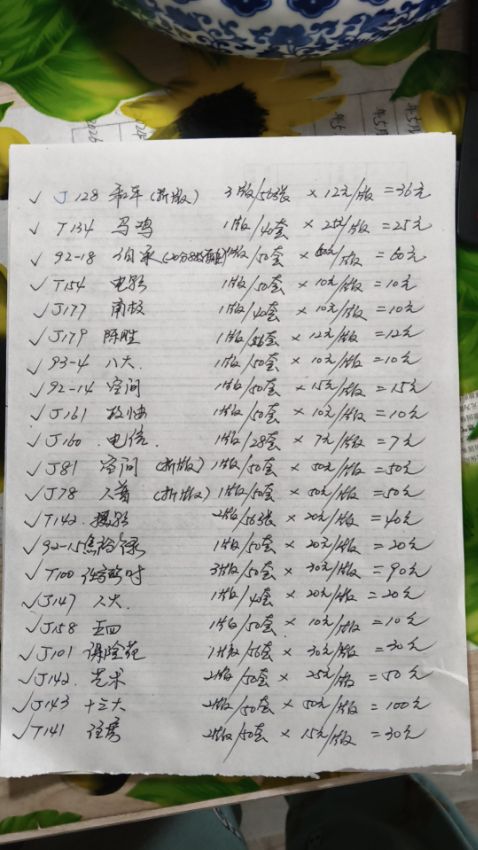 ✓ J128 和平(折版) 3版/56张 × 12元/版 =36元
✓ T134 马鸡 1版/40套 × 25元/版 =25元
✓ 92-18 伯承 1版/50套 × 60元/版 =60元
✓ T154 电影 1版/50套 × 10元/版 =10元
✓ J177 南极 1版/40套 × 10元/版 =10元
✓ J179 陈胜 1版/56套 × 12元/版 =12元
✓ 93-4 八大. 1版/50套 × 10元/版 =10元
✓ 92-14 空间 1版/50套 × 15元/版 =15元
✓ J161 1版/50套 × 10元/版 =10元
✓ J160 电信. 1版/28套 × 7元/版 =7元
✓ J81 空间 (折版) 1版/50套 × 50元/版 =50元
✓ J78 人普 (折版) 1版/50套 × 50元/版 =50元
✓ T142. 摄影 2版/56张 × 20元/版 =40元
✓ 92-15焦裕禄 1版/50套 × 20元/版 =20元
✓ T100 3版/50套 × 30元/版 =90元
✓ J147 人大. 1版/40套 × 20元/版 =20元
✓ J158 五四 1版/50套 × 10元/版 =10元
✓ J101 保险苑 1版/56套 × 30元/版 =30元
✓ J142. 艺术 2版/50套 × 25元/版 =50元
✓ J143 十三大 2版/50套 × 50元/版 =100元
✓ T141 2版/50套 × 15元/版 =30元